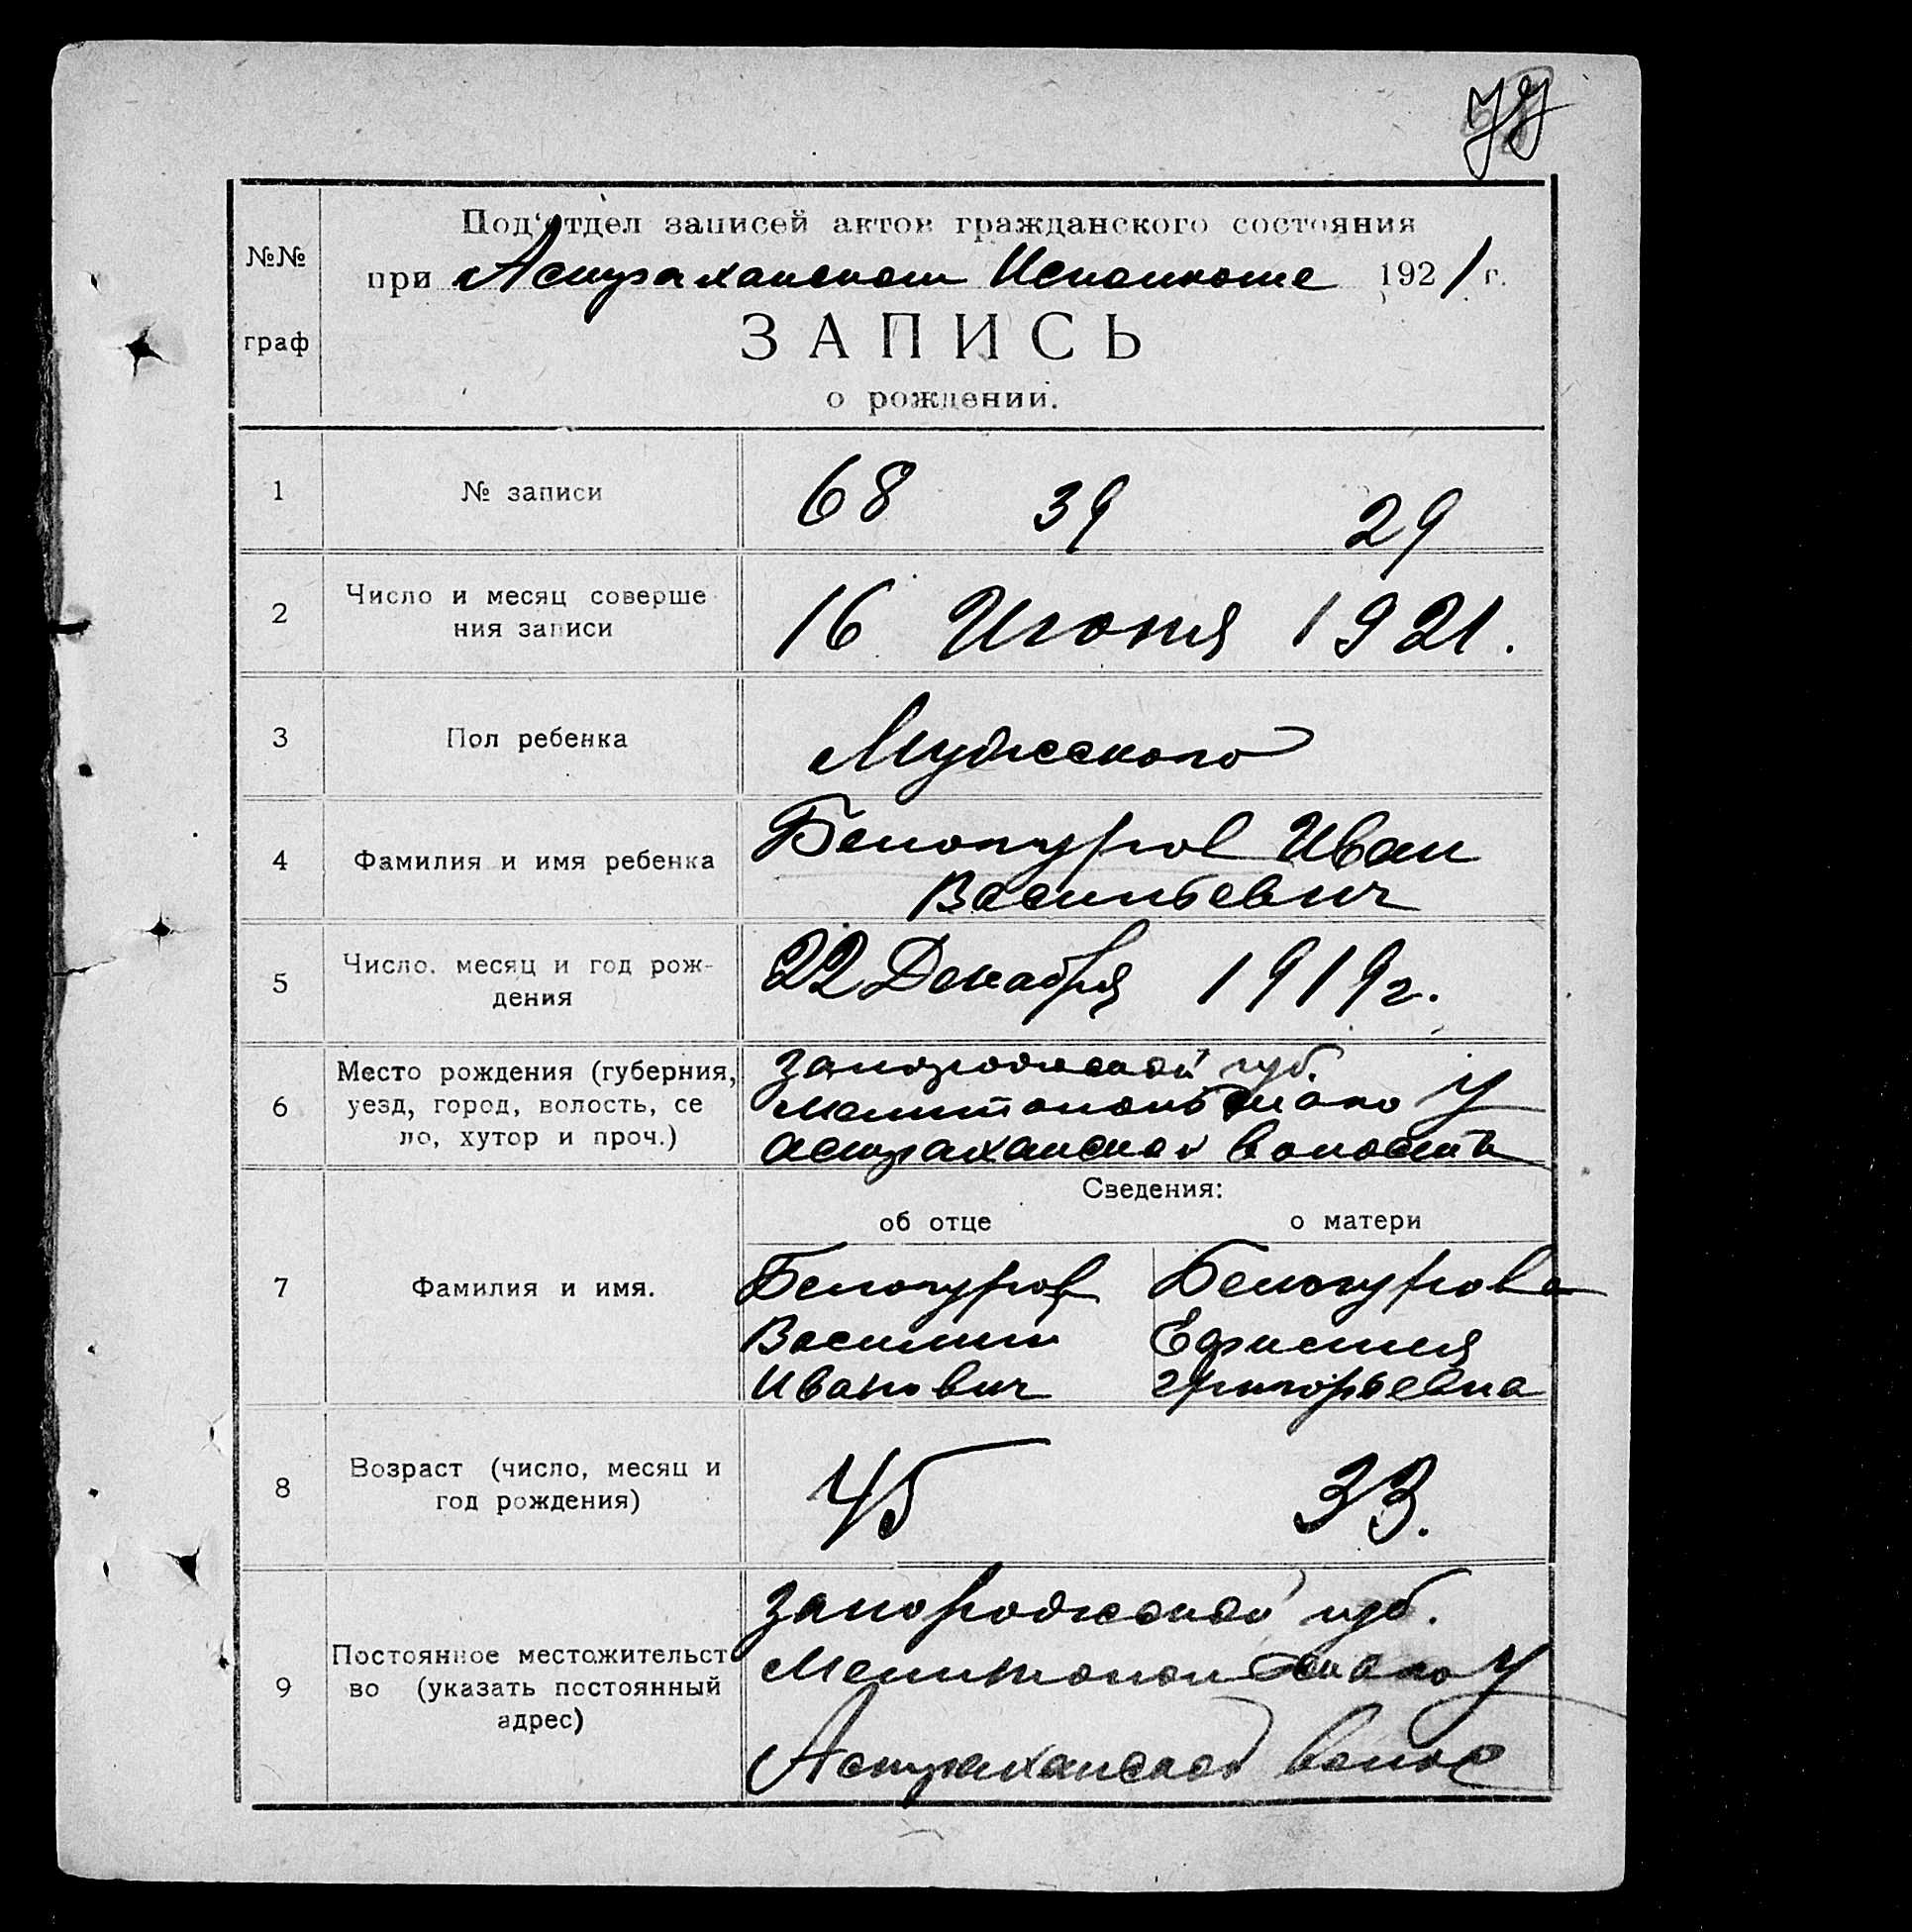 №№
граф
Под‘отдел записей актов гражданского состояния
при Астраханском Исполкоме 1921 г.
ЗАПИСЬ
о рождении.
1 № записи 68 39 29
2 Число и месяц соверше
ния записи
16 Июня 1921.
3 Пол ребенка Мужеского
4 Фамилия и имя ребенка
Белокуров Иван
Васильевич
5 Число, месяц и год рож-
дения
22 Декабря 1919 г.
6 Место рождения (губерния,
уезд, город, волость, се
ло, хутор и проч.)
Запорожской губ.
Мелитопольского У
Астраханская волость
Сведения:
об отце о матери
7 Фамилия и имя.
Белокуров
Василий
Иванович
Белокурова
Ефимия
Григорьевна
8 Возраст (число, месяц и
год рождения)
45 33.
9 Постоянное местожительст
во (указать постоянный
адрес)
Запорожской губ.
Мелитопольского У
Астраханской волос